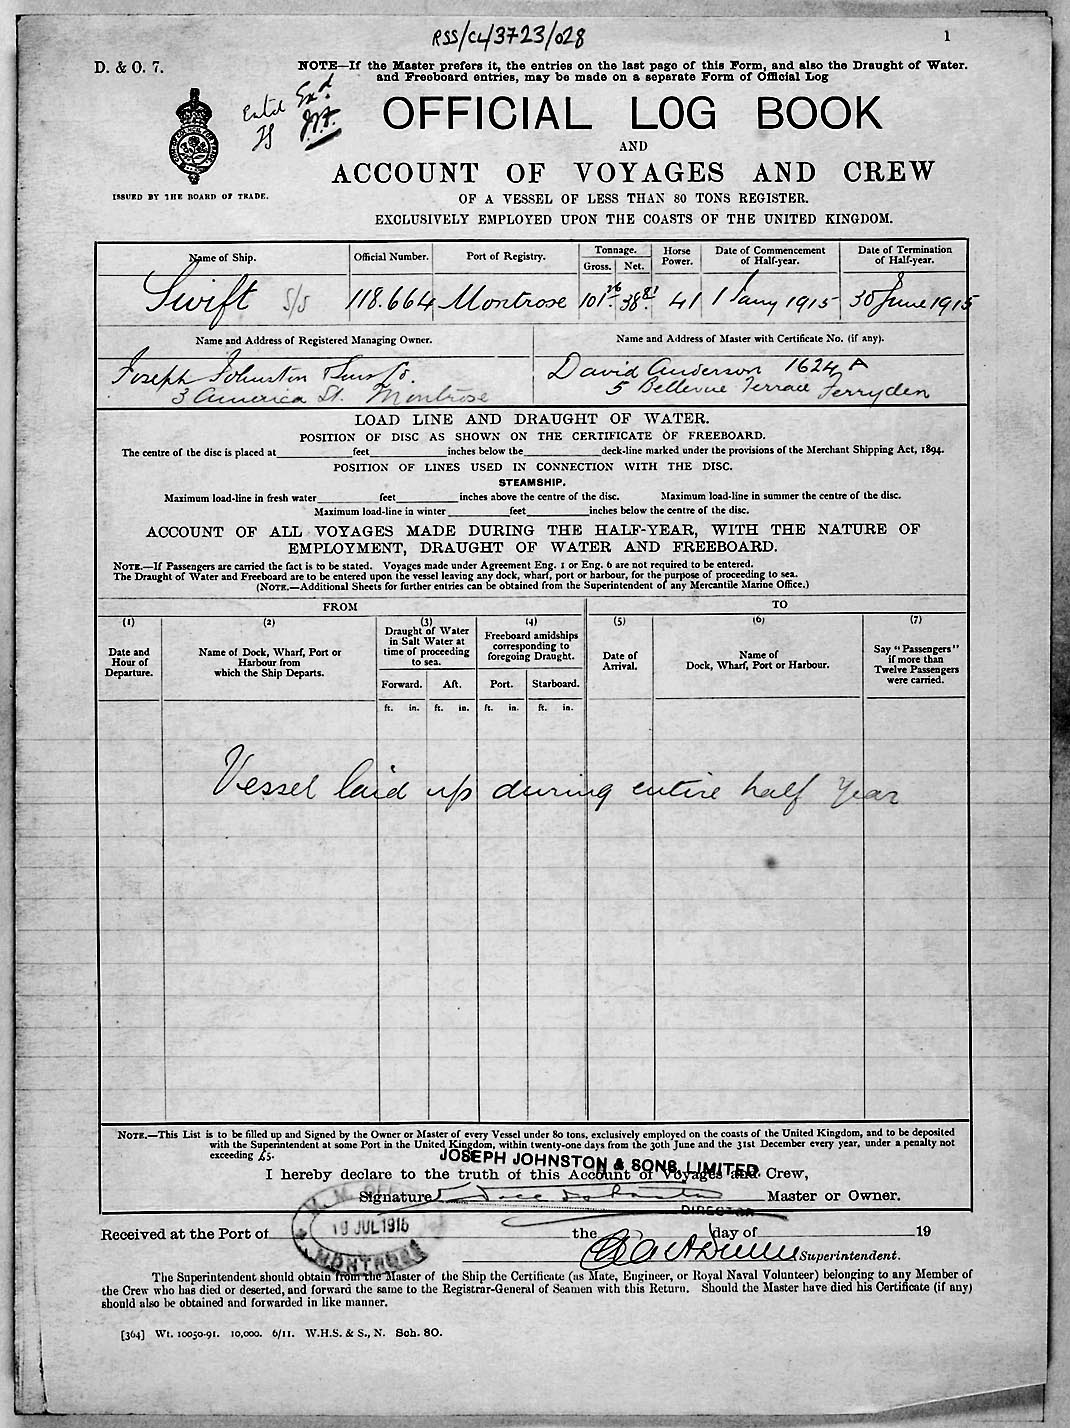 RSS/CL/3723/028
1
D. & O. 7.
NOTE—If the Master prefers it, the entries on the last page of this Form, and also the Draught of Water.
and Freeboard entries, may be made on a separate Form of Official Log
OFFICIAL LOG BOOK
AND
ACCOUNT OF VOYAGES AND CREW
ISSUED BY THE BOARD OF TRADE.
OF A VESSEL OF LESS THAN 80 TONS REGISTER.
EXCLUSIVELY EMPLOYED UPON THE COASTS OF THE UNITED KINGDOM.
Name of Ship. Official Number. Port of Registry. Tonnage. Gross. Net. Horse Power. Date of Commencement of Half-year. Date of Termination of Half-year.
Swift S/S 118.664 Montrose 101.26 38.81 41 1 Jany 1915 30 June 1915
Name and Address of Registered Managing Owner. Name and Address of Master with Certificate No. (if any).
Joseph Johnston & Sons Ld. David Anderson 1624 A
3 America St. Montrose 5 Bellevue Terrace Ferryden
LOAD LINE AND DRAUGHT OF WATER.
POSITION OF DISC AS SHOWN ON THE CERTIFICATE OF FREEBOARD.
The centre of the disc is placed at feet inches below the deck-line marked under the provisions of the Merchant Shipping Act, 1894.
POSITION OF LINES USED IN CONNECTION WITH THE DISC.
STEAMSHIP.
Maximum load-line in fresh water feet inches above the centre of the disc. Maximum load-line in summer the centre of the disc.
Maximum load-line in winter feet inches below the centre of the disc.
ACCOUNT OF ALL VOYAGES MADE DURING THE HALF-YEAR, WITH THE NATURE OF
EMPLOYMENT, DRAUGHT OF WATER AND FREEBOARD.
NOTE.—If Passengers are carried the fact is to be stated. Voyages made under Agreement Eng. 1 or Eng. 6 are not required to be entered.
The Draught of Water and Freeboard are to be entered upon the vessel leaving any dock, wharf, port or harbour, for the purpose of proceeding to sea.
(NOTE.—Additional Sheets for further entries can be obtained from the Superintendent of any Mercantile Marine Office.)
FROM TO
(1) (2) (3) (4) (5) (6) (7)
Date and Hour of Departure.
Name of Dock, Wharf, Port or Harbour from which the Ship Departs.
Draught of Water in Salt Water at time of proceeding to sea.
Freeboard amidships corresponding to foregoing Draught.
Date of Arrival.
Name of Dock, Wharf, Port or Harbour.
Say "Passengers" if more than Twelve Passengers were carried.
Forward. Aft. Port. Starboard.
ft. in. ft. in. ft. in. ft. in.
Vessel laid up during entire half year
NOTE.—This List is to be filled up and Signed by the Owner or Master of every Vessel under 80 tons, exclusively employed on the coasts of the United Kingdom, and to be deposited
with the Superintendent at some Port in the United Kingdom, within twenty-one days from the 30th June and the 31st December every year, under a penalty not
exceeding £5.
JOSEPH JOHNSTON & SONS, LIMITED.
I hereby declare to the truth of this Account of Voyages and Crew,
Signature Master or Owner.
DIRECTOR
19 JUL 1915
MONTROSE
Received at the Port of the day of 19
Superintendent.
The Superintendent should obtain from the Master of the Ship the Certificate (as Mate, Engineer, or Royal Naval Volunteer) belonging to any Member of
the Crew who has died or deserted, and forward the same to the Registrar-General of Seamen with this Return. Should the Master have died his Certificate (if any)
should also be obtained and forwarded in like manner.
[364] Wt. 10050-91. 10,000. 6/11. W.H.S. & S., N. Sch. 80.